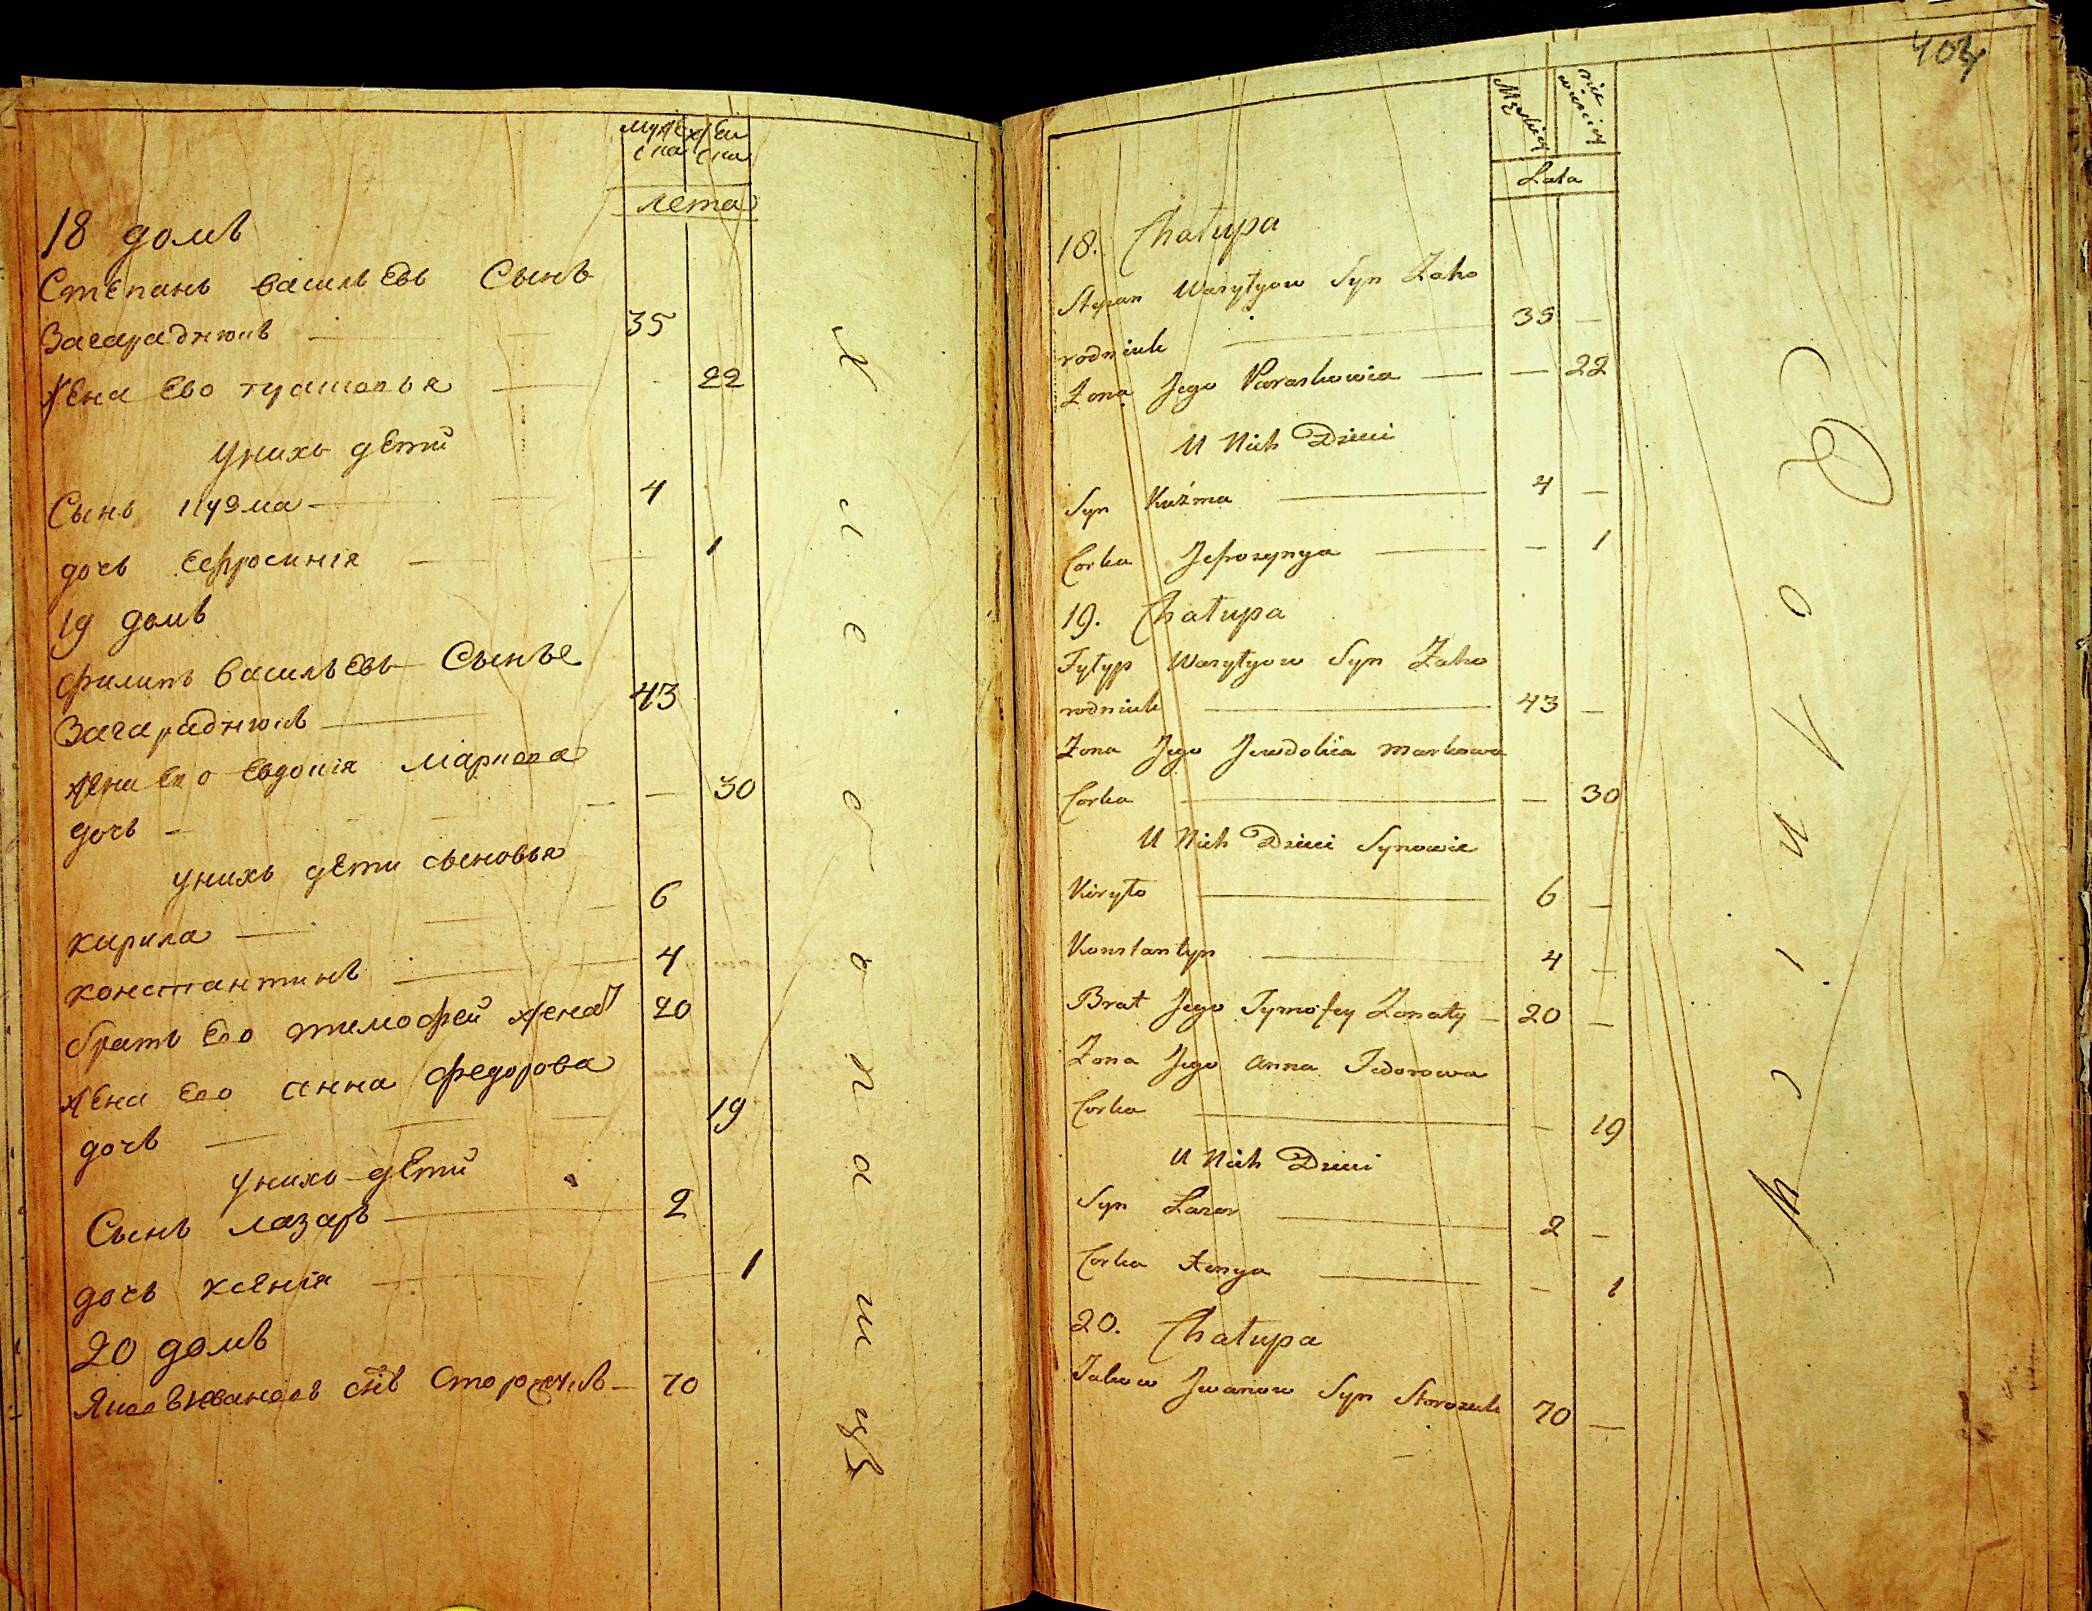 мужеска женска
лета
18 домъ
Степанъ васильевъ Сынъ
Загараднюкъ — 35
жена Ево — 22
унихъ дети
Сынъ кузма — 4
дочь Ефросинія — 1
19 домъ
филипъ васильевъ Сынъ
Загараднюкъ — 43
жена Ево Евдокія Маркова
дочь — — 30
унихъ дети сыновья
кирила — 6
константинъ — 4
братъ Ево тимофей женат 20
жена Ево анна федорова
дочь — 19
унихъ дети
Сынъ лазаръ — 2
дочь ксенія — 1
20 домъ
Яковъ ивановъ снъ Сторожукъ — 70
хлебопашцъ
404
Męskiey
Lata
18. Chałupa
Stepan Wasylyow Syn Zaho
rodniuk — 35 —
Żona Jego Paraskowia — — 22
U Nich Dzieci
Syn Kuźma — 4 —
Corka Jefrozynya — — 1
19. Chałupa
Fylyp Wasylyow Syn Zaho
rodniuk — 43 —
Żona Jego Jewdokia Markowa
Corka — — 30
U Nich Dzieci Synowie
Kiryło — 6 —
Konstantyn — 4 —
Brat Jego Tymofey Żonaty — 20 —
Żona Jego Anna Fedorowa
Corka — — 19
U Nich Dzieci
Syn Łazar — 2 —
Corka Xenya — — 1
20. Chałupa
Jakow Jwanow Syn Storozuk 70 —